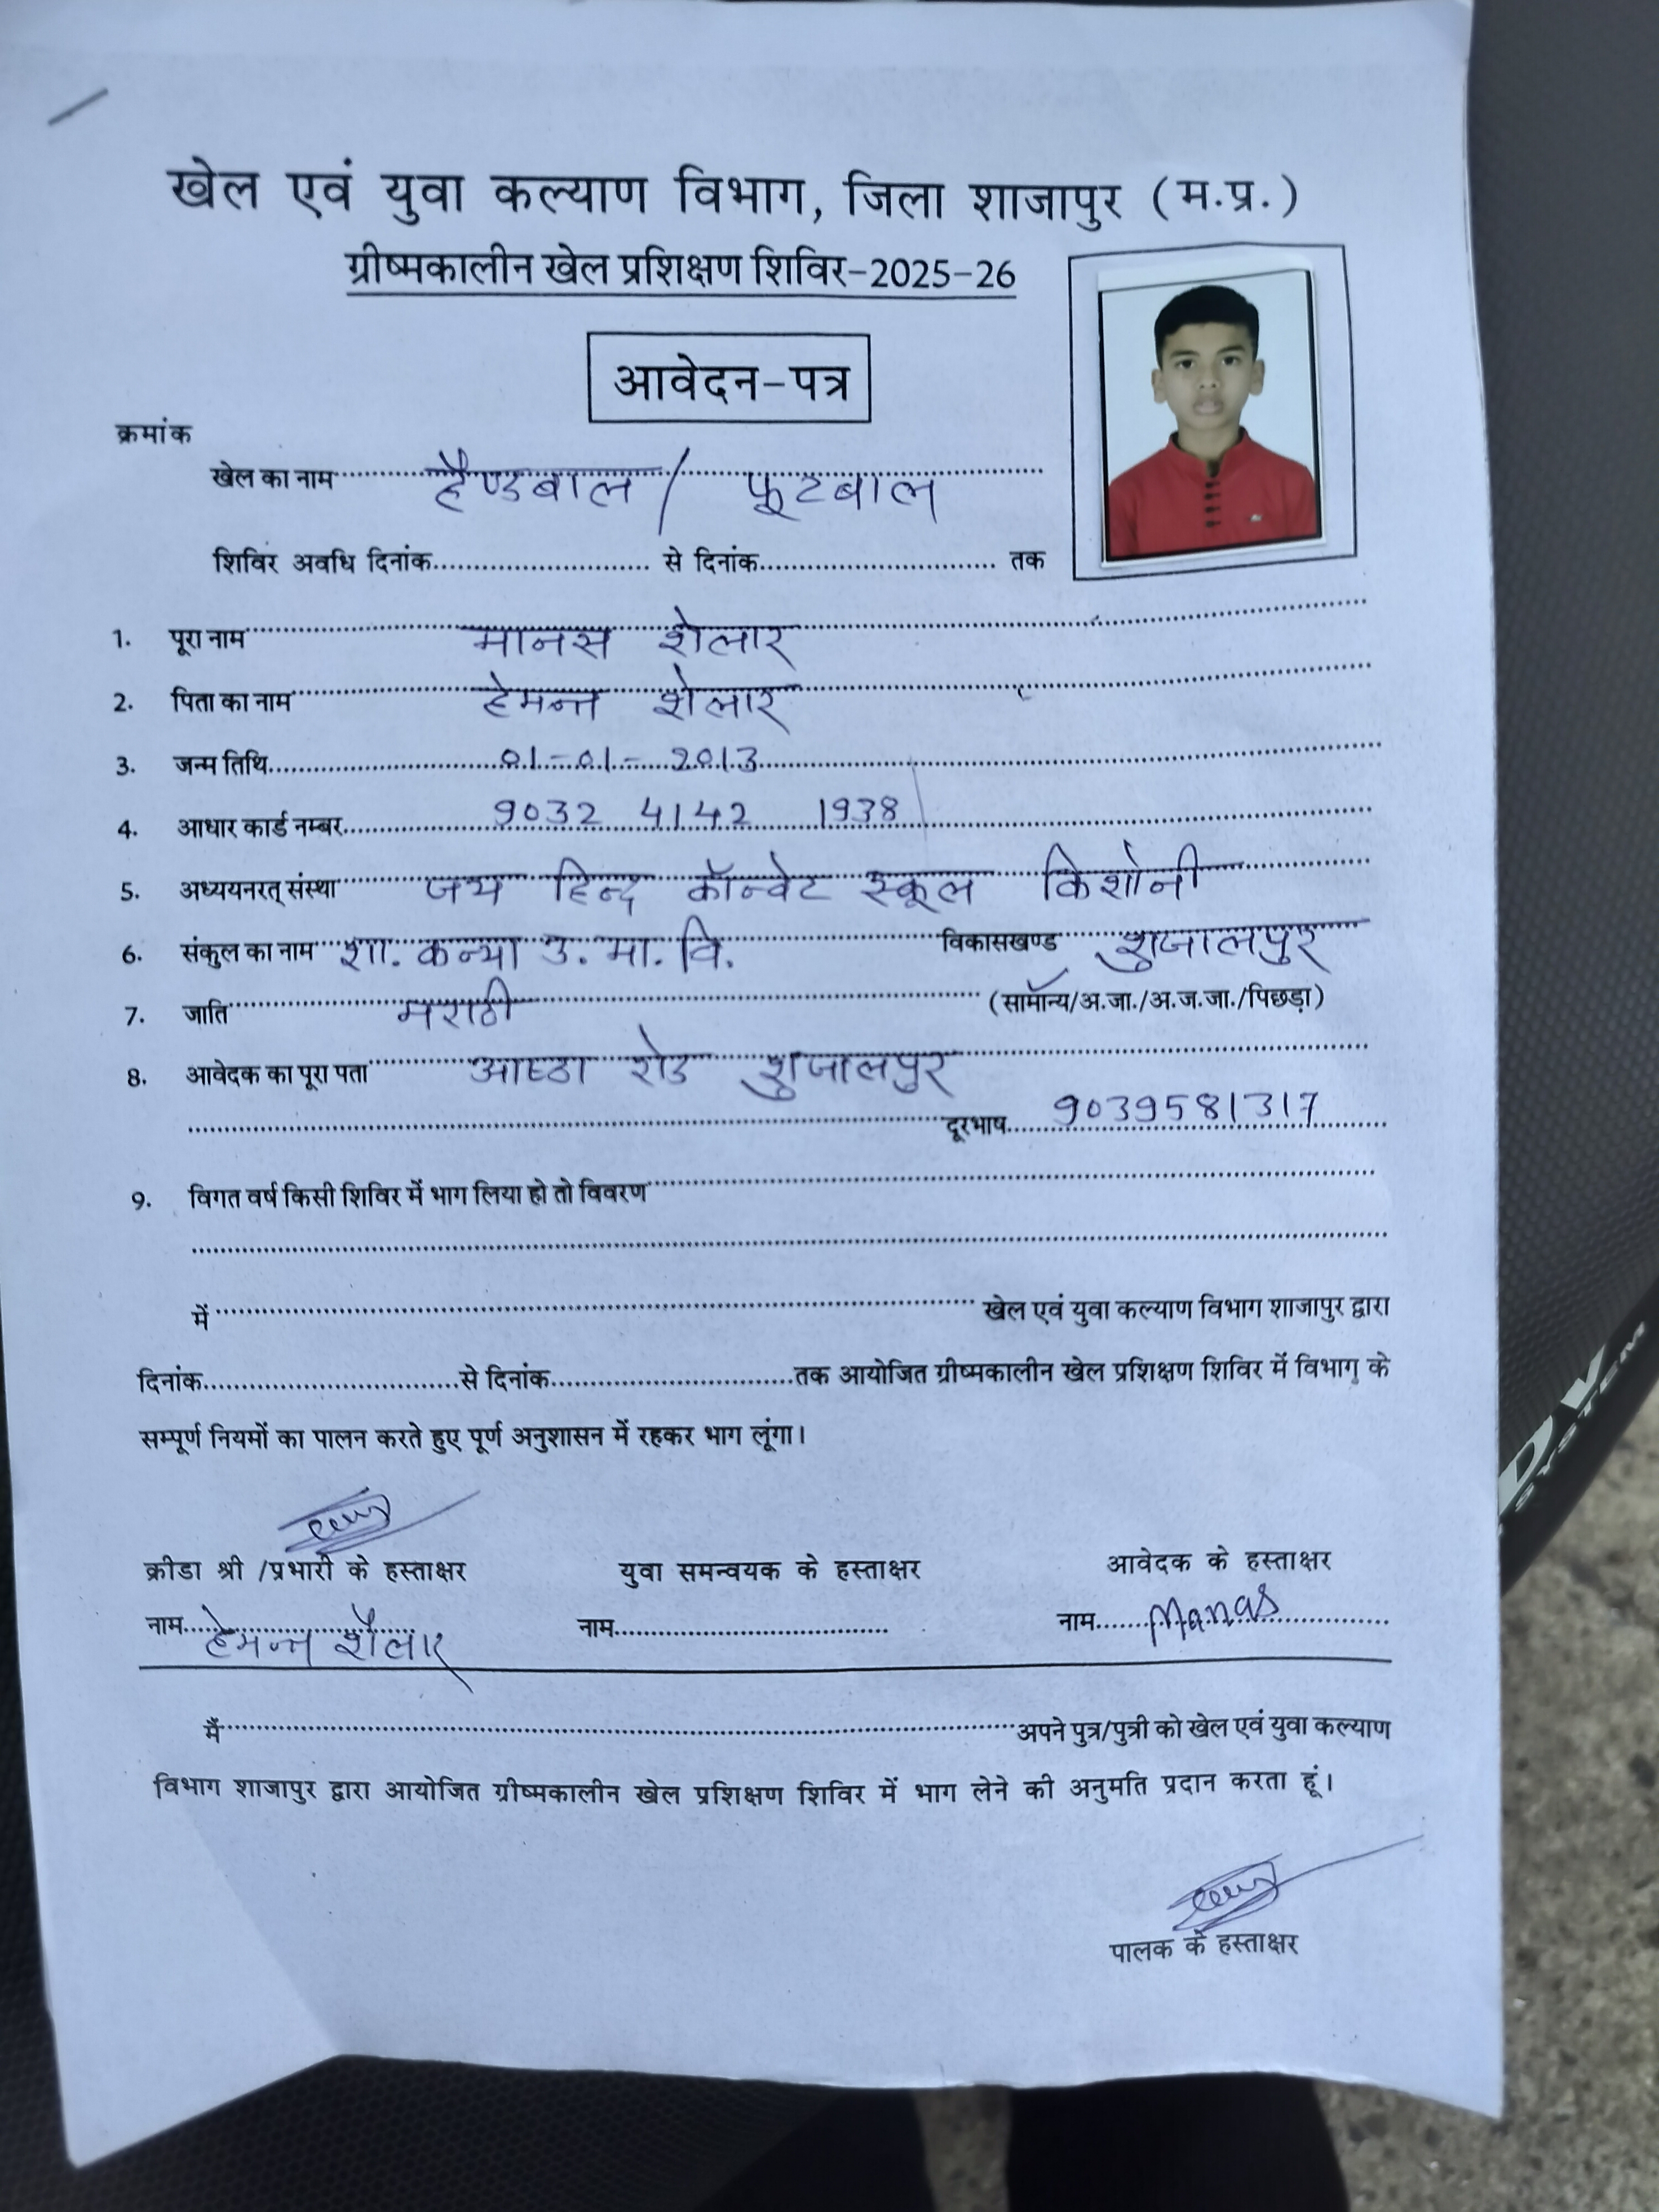 खेल एवं युवा कल्याण विभाग, जिला शाजापुर (म.प्र.)
ग्रीष्मकालीन खेल प्रशिक्षण शिविर-2025-26
आवेदन-पत्र
क्रमांक
खेल का नाम हैण्डबाल / फूटबाल
शिविर अवधि दिनांक.............................. से दिनांक.............................. तक
1. पूरा नाम मानस शेलार
2. पिता का नाम हेमन्त शेलार
3. जन्म तिथि 01-01-2013
4. आधार कार्ड नम्बर 9032 4142 1938
5. अध्ययनरत् संस्था जय हिन्द कॉन्वेट स्कूल किशोनी
6. संकुल का नाम शा. कन्या उ. मा. वि. विकासखण्ड शुजालपुर
7. जाति मराठी (सामान्य/अ.जा./अ.ज.जा./पिछड़ा)
8. आवेदक का पूरा पता आष्टा रोड शुजालपुर
दूरभाष 9039581317
9. विगत वर्ष किसी शिविर में भाग लिया हो तो विवरण
में .............................. खेल एवं युवा कल्याण विभाग शाजापुर द्वारा
दिनांक..............................से दिनांक..............................तक आयोजित ग्रीष्मकालीन खेल प्रशिक्षण शिविर में विभाग के
सम्पूर्ण नियमों का पालन करते हुए पूर्ण अनुशासन में रहकर भाग लूंगा।
क्रीडा श्री /प्रभारी के हस्ताक्षर युवा समन्वयक के हस्ताक्षर आवेदक के हस्ताक्षर
नाम हेमन्त शैलार नाम.............................. नाम Manas
मैं .............................. अपने पुत्र/पुत्री को खेल एवं युवा कल्याण
विभाग शाजापुर द्वारा आयोजित ग्रीष्मकालीन खेल प्रशिक्षण शिविर में भाग लेने की अनुमति प्रदान करता हूं।
पालक के हस्ताक्षर
SYSTEM